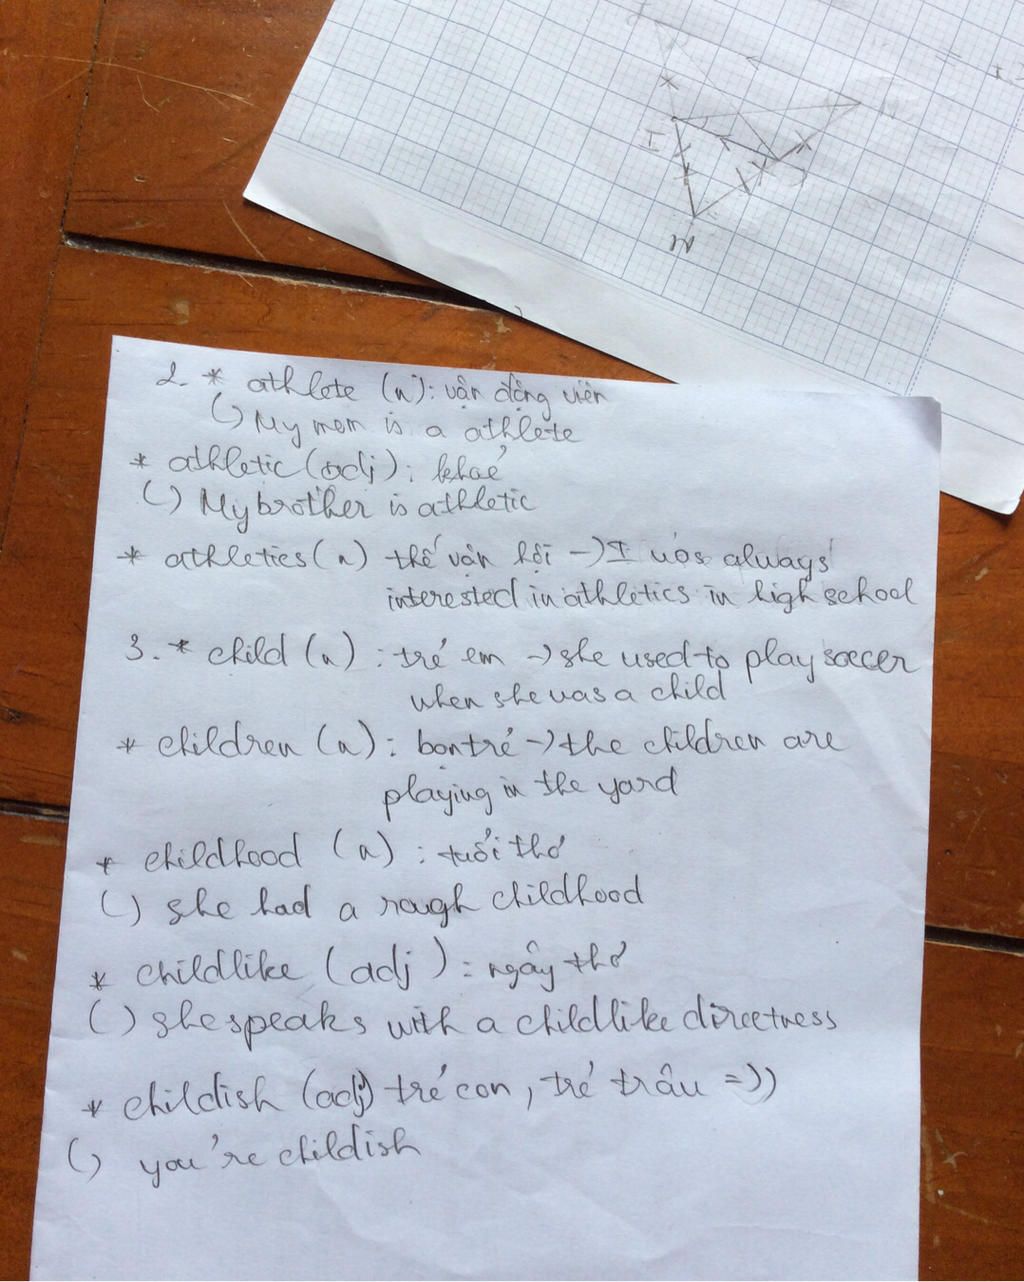 2. * athlete (n): vận động viên
My mom is a athlete
* athletic (adj): khoẻ
My brother is athletic
* athletics (n) thế vận hội -> I was always
interested in athletics in high school
3. * child (n): trẻ em -> she used to play soccer
when she was a child
* children (n): bọn trẻ -> the children are
playing in the yard
* childhood (n): tuổi thơ
she had a rough childhood
* childlike (adj): ngây thơ
she speaks with a childlike directness
* childish (adj) trẻ con, trẻ trâu =))
you're childish